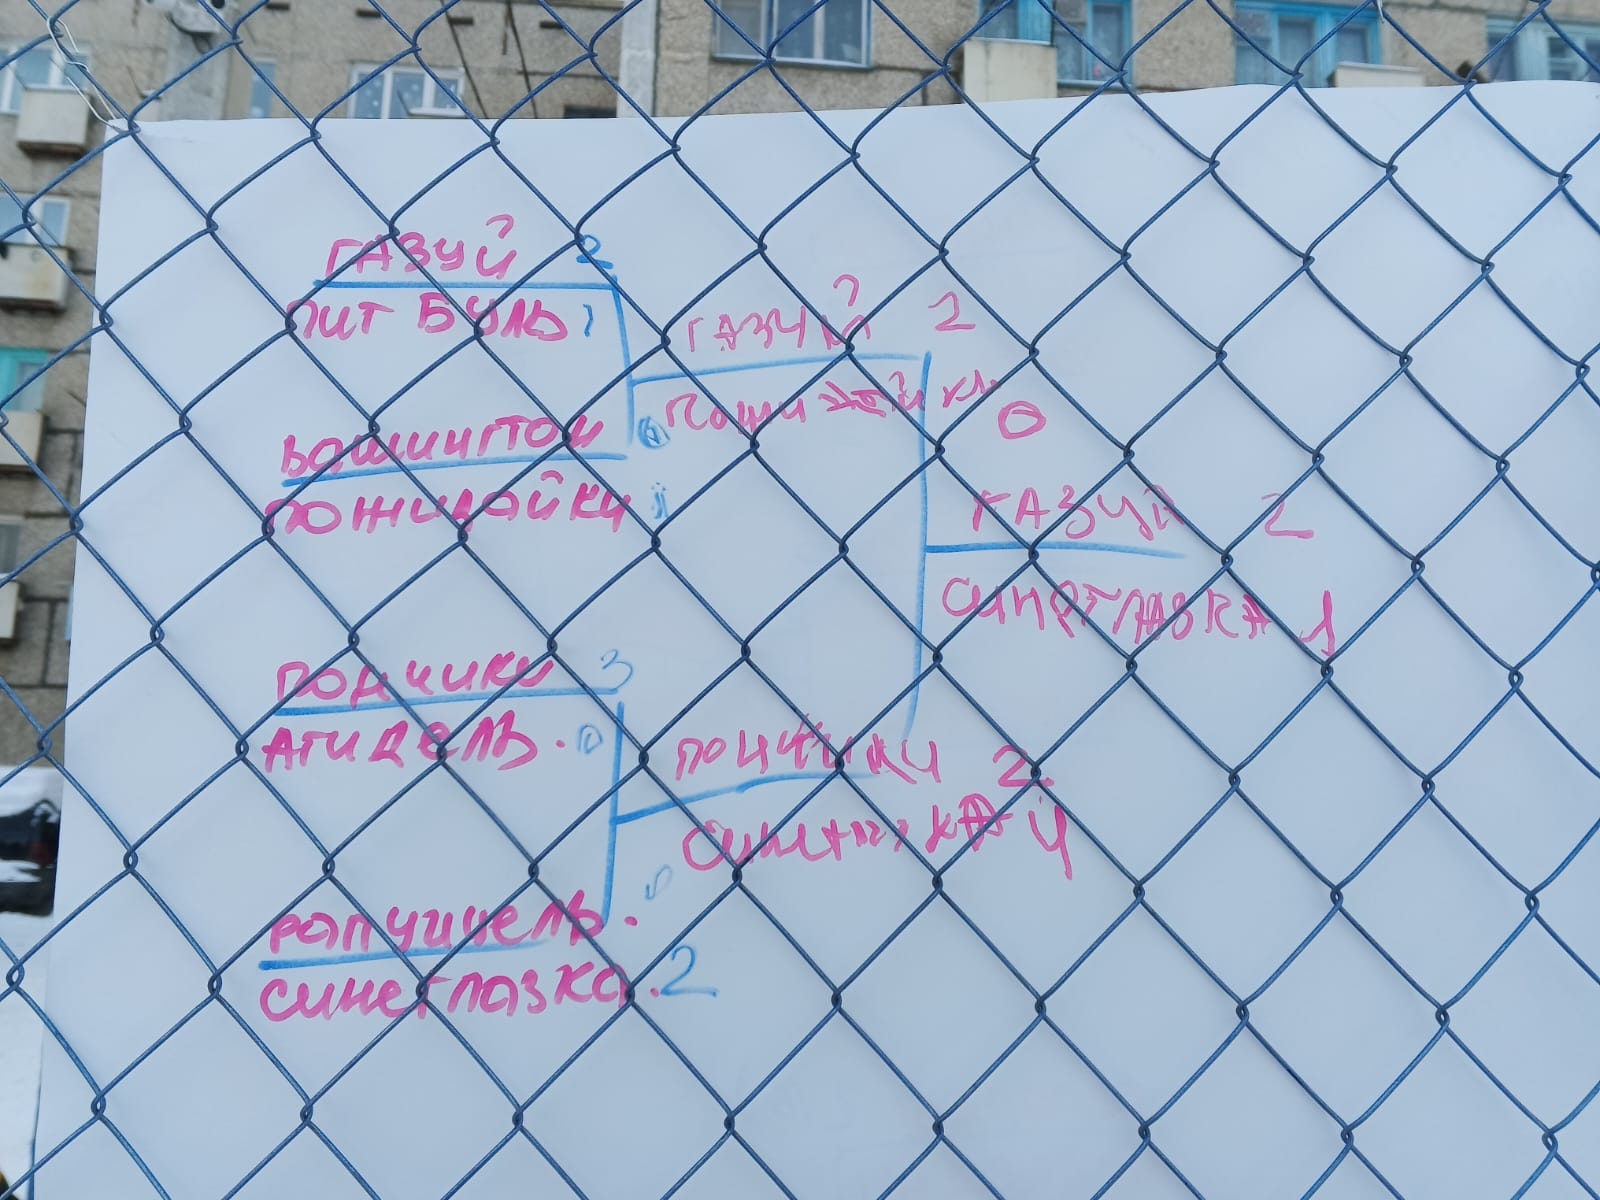 ГАЗУЙ 2
ПИТ БУЛЬ 1
ВАШИНГТОН 0
ПОЖИДАЙКИ
ГАЗУЙ 2
0
ГАЗУЙ 2
СИНЕГЛАЗКА 1
ПОНЧИКИ 3
АГИДЕЛЬ. 0
ПОНЧИКИ 2.
СИНЕГЛАЗКА 4
РАПУНЦЕЛЬ. 0
СИНЕГЛАЗКА. 2